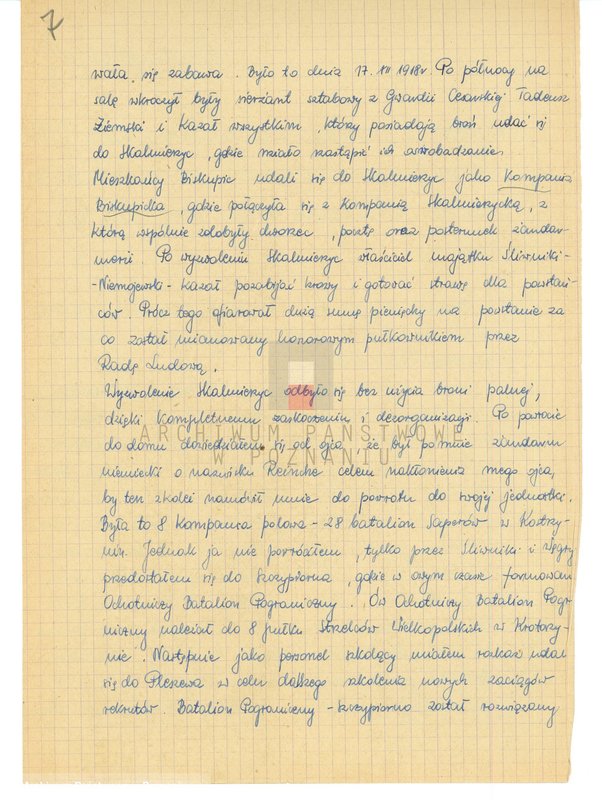 7
wała się zabawa. Było to dnia 17. XII 1918r. Po północy na
salę wkroczył były sierżant sztabowy z Gwardii Cesarskiej Tadeusz
Ziemski i kazał wszystkim, którzy posiadają broń udać się
do Skalmierzyc, gdzie miało nastąpić ich oswobodzenie.
Mieszkańcy Biskupic udali się do Skalmierzyc jako Kompania
Biskupicka, gdzie połączyła się z Kompanią Skalmierzycką, z
którą wspólnie zdobyły dworzec, pocztę oraz posterunek żandar-
merii. Po wyzwoleniu Skalmierzyc właściciel majątku Śliwniki-
-Niemojewski- kazał pozabijać krowy i gotować strawę dla powstań-
ców. Prócz tego ofiarował dużą sumę pieniędzy na powstanie za
co został mianowany honorowym pułkownikiem przez
Radę Ludową.
Wyzwolenie Skalmierzyc odbyło się bez użycia broni palnej,
dzięki kompletnemu zaskoczeniu i dezorganizacji. Po powrocie
do domu dowiedziałem się od ojca, że był po mnie żandarm
niemiecki o nazwisku Reinche celem nakłonienia mego ojca,
by ten z kolei namówił mnie do powrotu do swojej jednostki.
Była to 8 kompania polowa - 28 batalion Saperów w Kostrzy-
niu. Jednak ja nie powróciłem, tylko przez Śliwniki i Węgry
przedostałem się do Szczypiorna, gdzie w owym czasie formowano
Ochotniczy Batalion Pograniczny. Ów Ochotniczy Batalion Pogra-
niczny należał do 8 pułku Strzelców Wielkopolskich w Krotoszy-
nie. Następnie jako personel szkolący miałem rozkaz udać
się do Pleszewa w celu dalszego szkolenia nowych zaciągów
rekrutów. Batalion Pograniczny - Szczypiorno został rozwiązany
ARCHIWUM PAŃSTWOWE
W POZNANIU